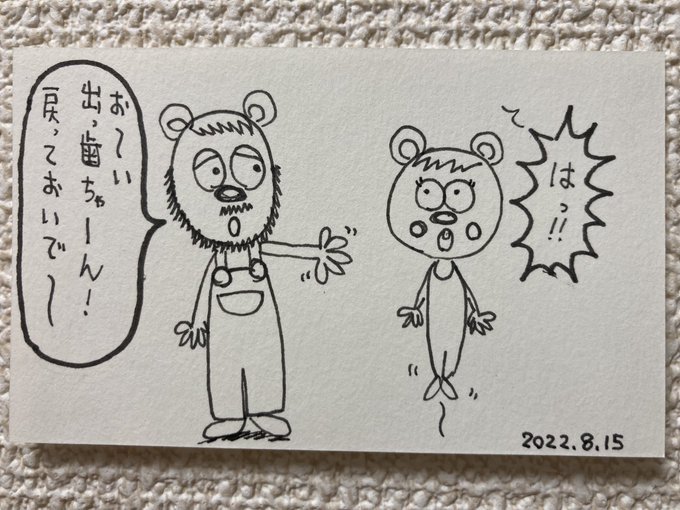 お〜い
出っ歯ちゃーん!
戻っておいで〜
はっ!!
2022.8.15